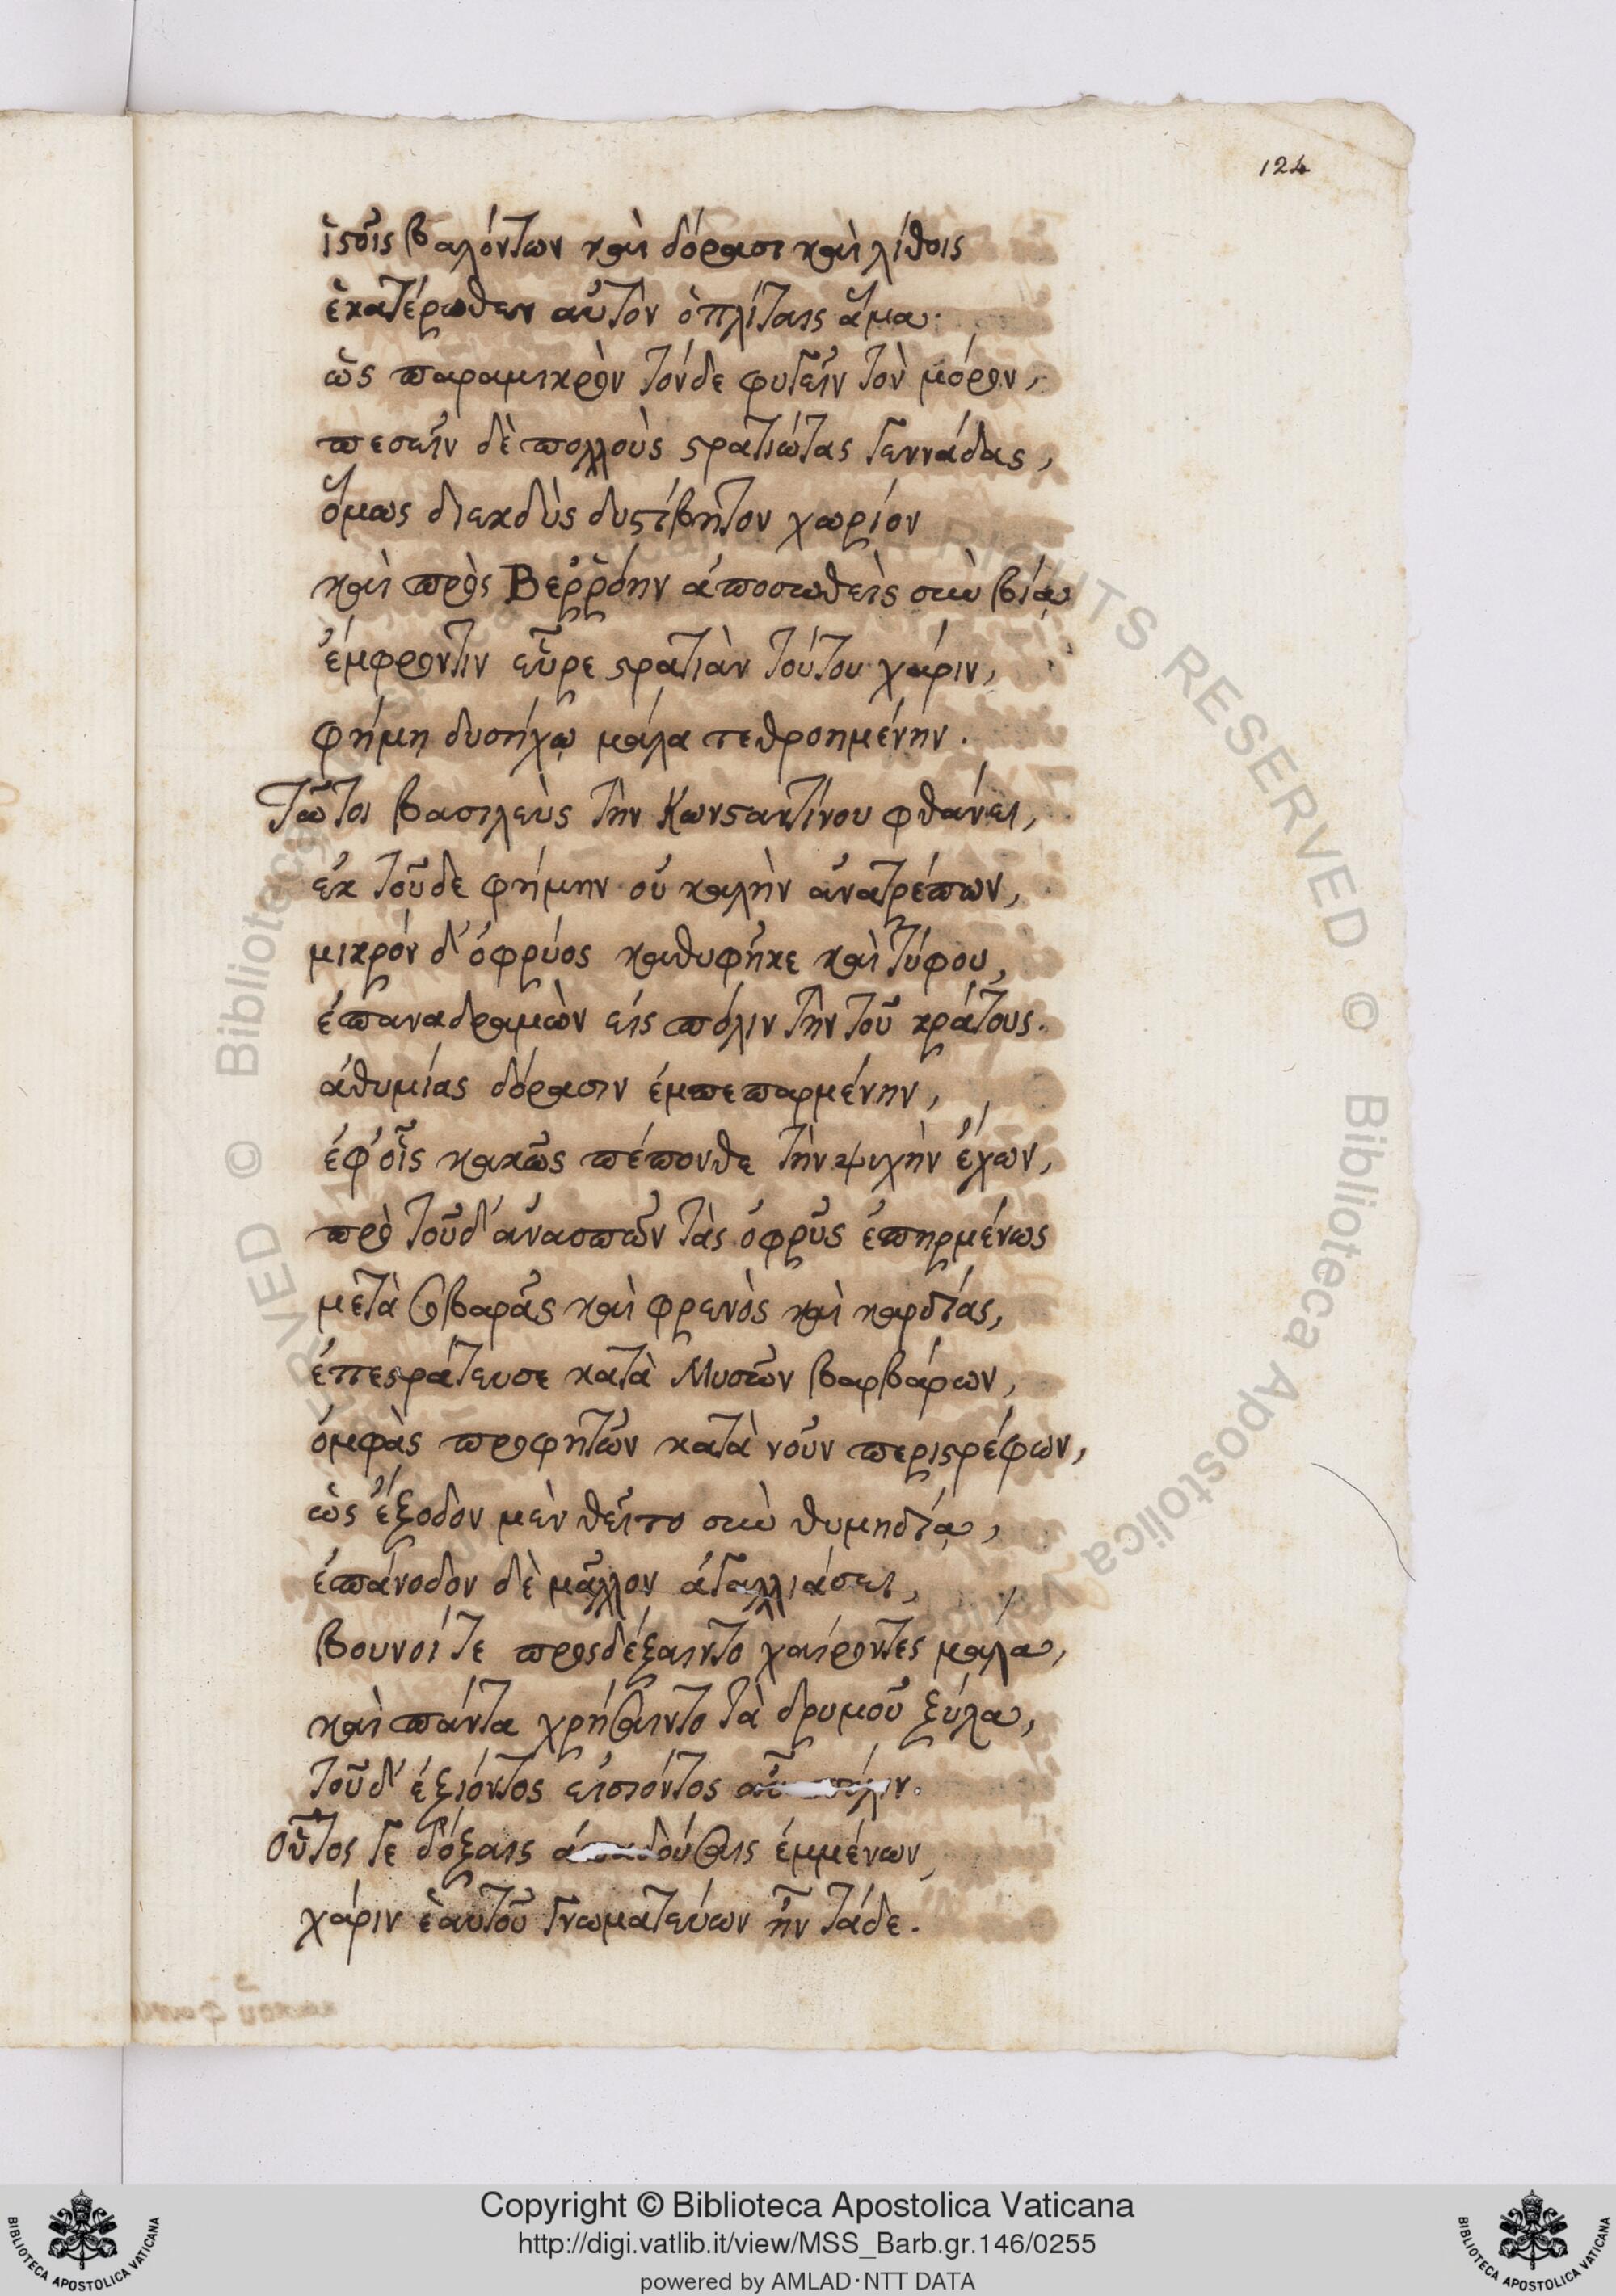 124
ἰστοῖς βαλόντων καὶ δόρασι καὶ λίθοις
ἑκατέρωθεν αὐτὸν ὁπλίταις ἅμα·
ὡς παραμικρὸν τόνδε φυγεῖν τὸν μόρον,
πεσεῖν δὲ πολλοὺς στρατιώτας γεννάδας,
ὅμως διεκδὺς δυστίβητον χωρίον
καὶ πρὸς Βεῤῥόην ἀποσωθεὶς σὺν βίᾳ
ἔμφροντιν εὗρε στρατιὰν τούτου χάριν,
φήμη δυσήχῳ μάλα τεθροημένην.
Τῶ τοι βασιλεὺς τὴν Κωνσταντίνου φθάνει,
ἐκ τοῦδε φήμην οὐ καλὴν ἀνατρέπων,
μικρόν δ' ὀφρύος καθυφῆκε καὶ τύφου,
ἐπαναδραμὼν εἰς πόλιν τὴν τοῦ κράτους.
ἀθυμίας δόρασιν ἐμπεπαρμένην,
ἐφ' οἷς κακῶς πέπονθε τὴν ψυχὴν ἔχων,
πρὸ τοῦδ' ἀνασπῶν τὰς ὀφρῦς ἐπηρμένως
μετὰ σοβαρᾶς καὶ φρενὸς καὶ καρδίας,
ἐπεστράτευσε κατὰ Μυσῶν βαρβάρων,
ὀμφὰς προφητῶν κατὰ νοῦν περιστρέφων,
ὡς ἔξοδον μὲν θεῖτο σὺν θυμηδίᾳ,
ἐπάνοδον δὲ μᾶλλον ἀγαλλιάσει,
βουνοί τε προσδέξαιντο χαίροντες μάλα,
καὶ πάντα χρήσαιντο τὰ δρυμοῦ ξύλα,
τοῦδ' ἐξιόντος εἰσιόντος
Οὗτός γε δόξαις ἐμμένων,
χάριν ἑαυτοῦ γνωματεύων ἦν τάδε.
Copyright © Biblioteca Apostolica Vaticana
http://digi.vatlib.it/view/MSS_Barb.gr.146/0255
powered by AMLAD·NTT DATA
BIBLIOTECA APOSTOLICA VATICANA
BIBLIOTECA APOSTOLICA VATICANA